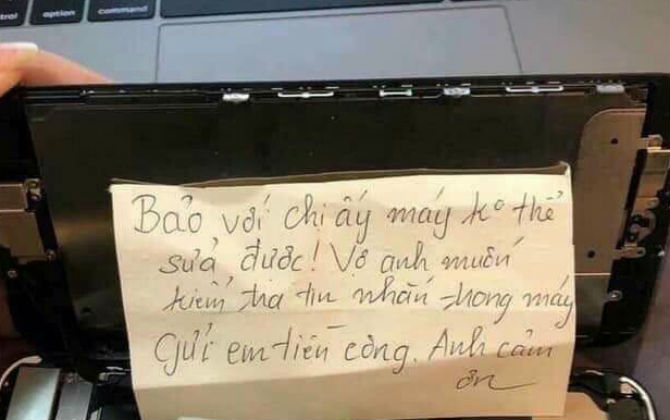 option
command
Bảo với chị ấy máy ko thể
sửa được! Vợ anh muốn
kiểm tra tin nhắn trong máy
Gửi em tiền công. Anh cảm
ơn